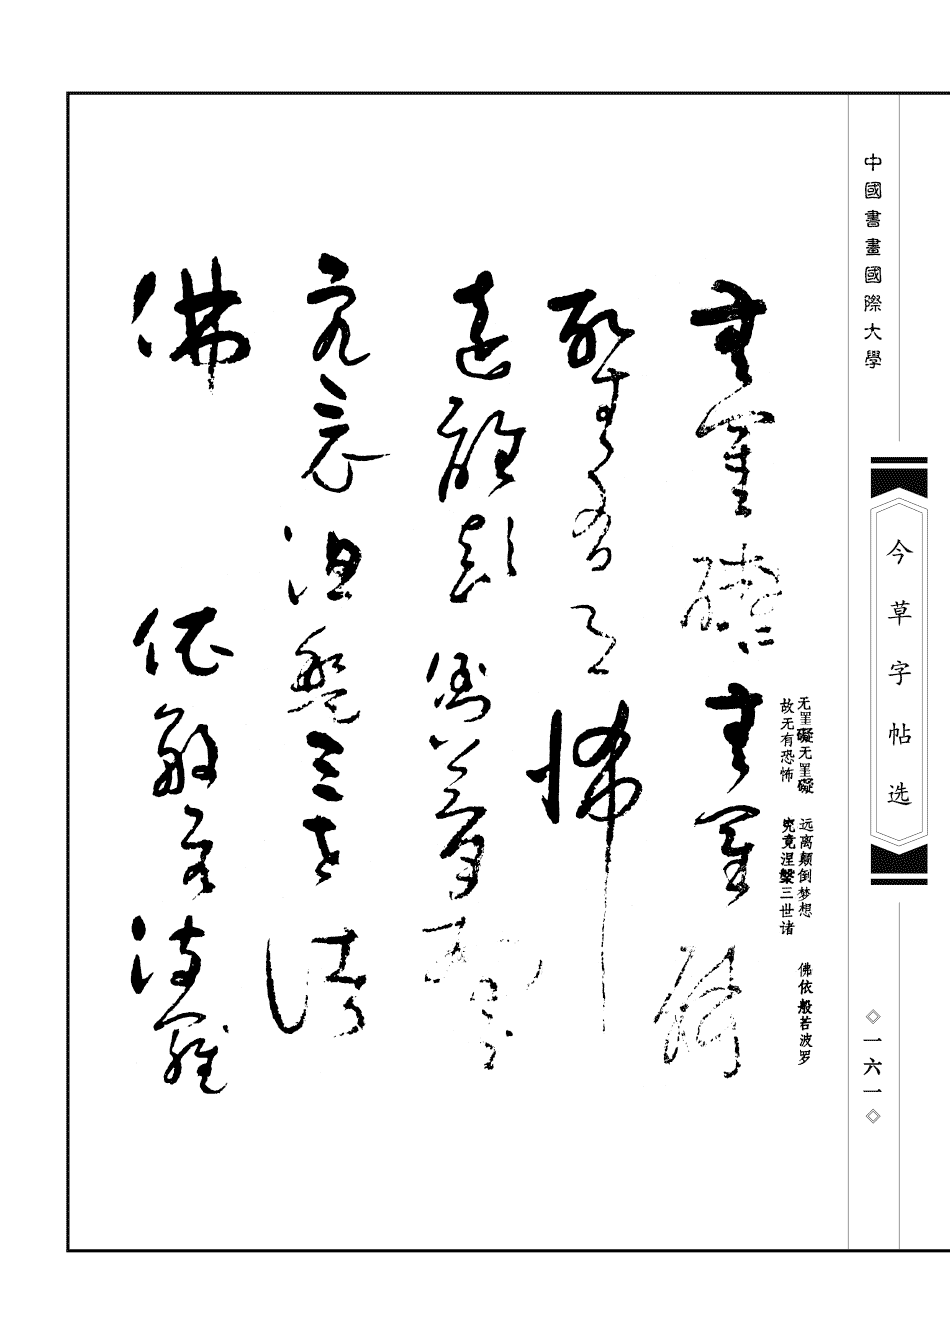 中國書畫國際大學
今草字帖选
◇一六一◇
无罣礙无罣礙
故无有恐怖
远离颠倒梦想
究竟涅槃三世诸
佛依般若波罗
無罣礙無罣礙
故無有恐怖
遠離顛倒夢想
究竟涅槃三世諸
佛依般若波羅